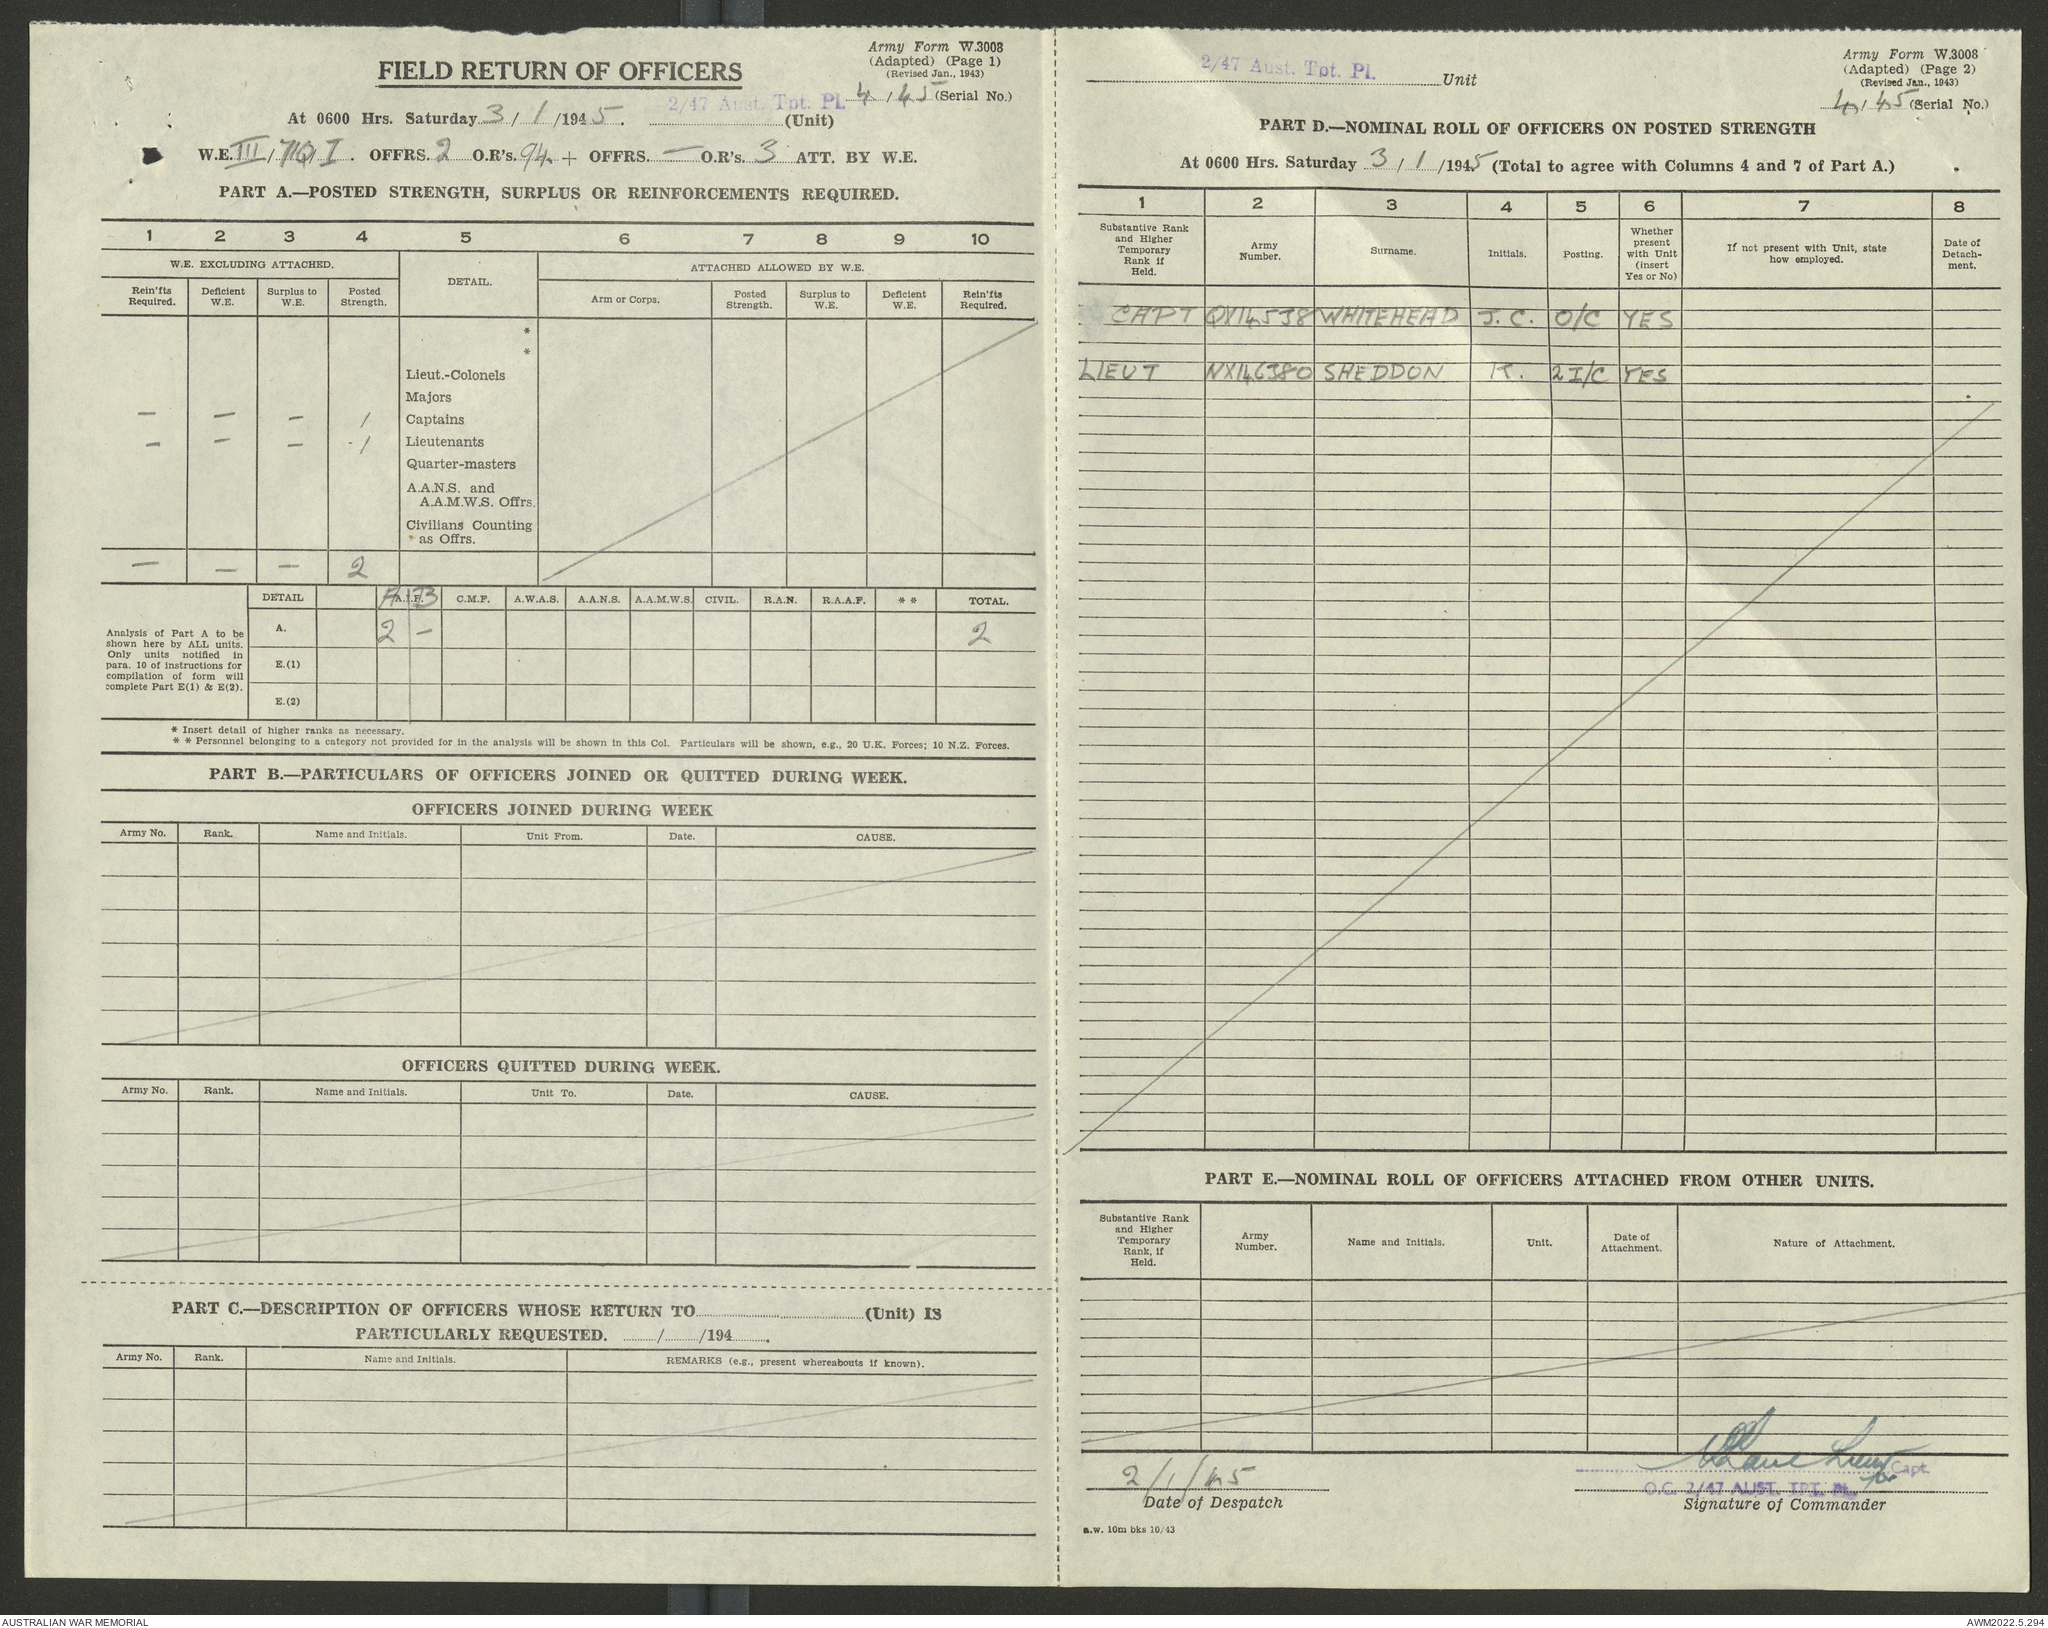 Army Form W.3008
(Adapted) (Page 1)
(Revised Jan., 1943)
FIELD RETURN OF OFFICERS
4/45 (Serial No.)
2/47 Aust. Tpt. Pl.
At 0600 Hrs. Saturday 3/1/1945. (Unit)
W.E. III/ I. OFFRS. 2 O.R's. 94 + OFFRS. — O.R's 3 ATT. BY W.E.
PART A.—POSTED STRENGTH, SURPLUS OR REINFORCEMENTS REQUIRED.
1 2 3 4 5 6 7 8 9 10
W.E. EXCLUDING ATTACHED. DETAIL. ATTACHED ALLOWED BY W.E.
Rein'fts Required. Deficient W.E. Surplus to W.E. Posted Strength. Arm or Corps. Posted Strength. Surplus to W.E. Deficient W.E. Rein'fts Required.
*
*
Lieut.-Colonels
Majors
— — — 1 Captains
— — — 1 Lieutenants
Quarter-masters
A.A.N.S. and
A.A.M.W.S. Offrs.
Civilians Counting
as Offrs.
— — — 2
DETAIL A.I.F. C.M.F. A.W.A.S. A.A.N.S. A.A.M.W.S. CIVIL. R.A.N. R.A.A.F. * * TOTAL.
A B
Analysis of Part A to be
shown here by ALL units.
Only units notified in
para. 10 of instructions for
compilation of form will
complete Part E(1) & E(2).
A. 2 — 2
E.(1)
E.(2)
* Insert detail of higher ranks as necessary.
* * Personnel belonging to a category not provided for in the analysis will be shown in this Col. Particulars will be shown, e.g., 20 U.K. Forces; 10 N.Z. Forces.
PART B.—PARTICULARS OF OFFICERS JOINED OR QUITTED DURING WEEK.
OFFICERS JOINED DURING WEEK
Army No. Rank. Name and Initials. Unit From. Date. CAUSE.
OFFICERS QUITTED DURING WEEK.
Army No. Rank. Name and Initials. Unit To. Date. CAUSE.
PART C.—DESCRIPTION OF OFFICERS WHOSE RETURN TO (Unit) IS
PARTICULARLY REQUESTED. / /194 .
Army No. Rank. Name and Initials. REMARKS (e.g., present whereabouts if known).
Army Form W.3008
(Adapted) (Page 2)
(Revised Jan., 1943)
2/47 Aust. Tpt. Pl. Unit
4/45 (Serial No.)
PART D.—NOMINAL ROLL OF OFFICERS ON POSTED STRENGTH
At 0600 Hrs. Saturday 3/1/1945 (Total to agree with Columns 4 and 7 of Part A.)
1 2 3 4 5 6 7 8
Substantive Rank and Higher Temporary Rank if Held. Army Number. Surname. Initials. Posting. Whether present with Unit (insert Yes or No) If not present with Unit, state how employed. Date of Detach-ment.
CAPT QX14538 WHITEHEAD J.C. O/C YES
LIEUT NX146380 SHEDDON K. 2I/C YES
PART E.—NOMINAL ROLL OF OFFICERS ATTACHED FROM OTHER UNITS.
Substantive Rank and Higher Temporary Rank, if Held. Army Number. Name and Initials. Unit. Date of Attachment. Nature of Attachment.
2/1/45 Lieut for Capt
Date of Despatch
O.C. 2/47 AUST. TPT. PL.
Signature of Commander
s.w. 10m bks 10/43
AUSTRALIAN WAR MEMORIAL
AWM2022.5.294